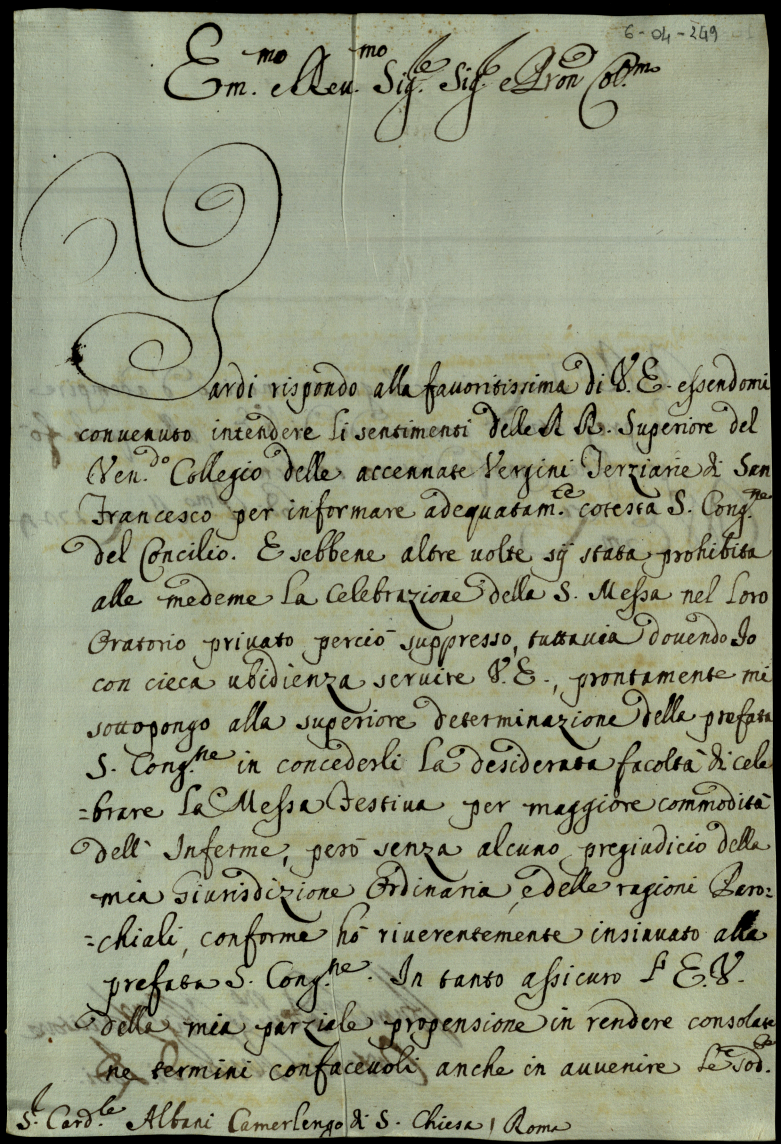 6-04-249
Em.mo e Reu.mo Sig.re Sig.re e Pron Col.mo
Tardi rispondo alla fauoritissima di V. E. essendomi
conuenuto intendere li sentimenti delle R R. Superiore del
Ven.do Collegio delle accennate Vergini Terziarie di San
Francesco per informare adequatam.te cotesta S. Cong.ne
del Concilio. E sebbene altre uolte sij stata prohibita
alle medeme la celebrazione della S. Messa nel loro
Oratorio priuato perciò suppresso, tuttauia douendo Io
con cieca ubidienza seruire V. E., prontamente mi
sottopongo alla superiore determinazione della prefata
S. Cong.ne in concederli la desiderata facoltà di cele
=brare la Messa Festiua per maggiore commodità
dell' Inferme, però senza alcuno pregiudicio della
mia Giurisdizione Ordinaria, e delle ragioni Paro=
=chiali, conforme hò riuerentemente insinuato alla
prefata S. Cong.ne. In tanto assicuro l' E. V.
della mia parziale propensione in rendere consolate
ne termini confaceuoli anche in auuenire le sod.te
S.r Card.le Albani Camerlengo di S. Chiesa / Roma